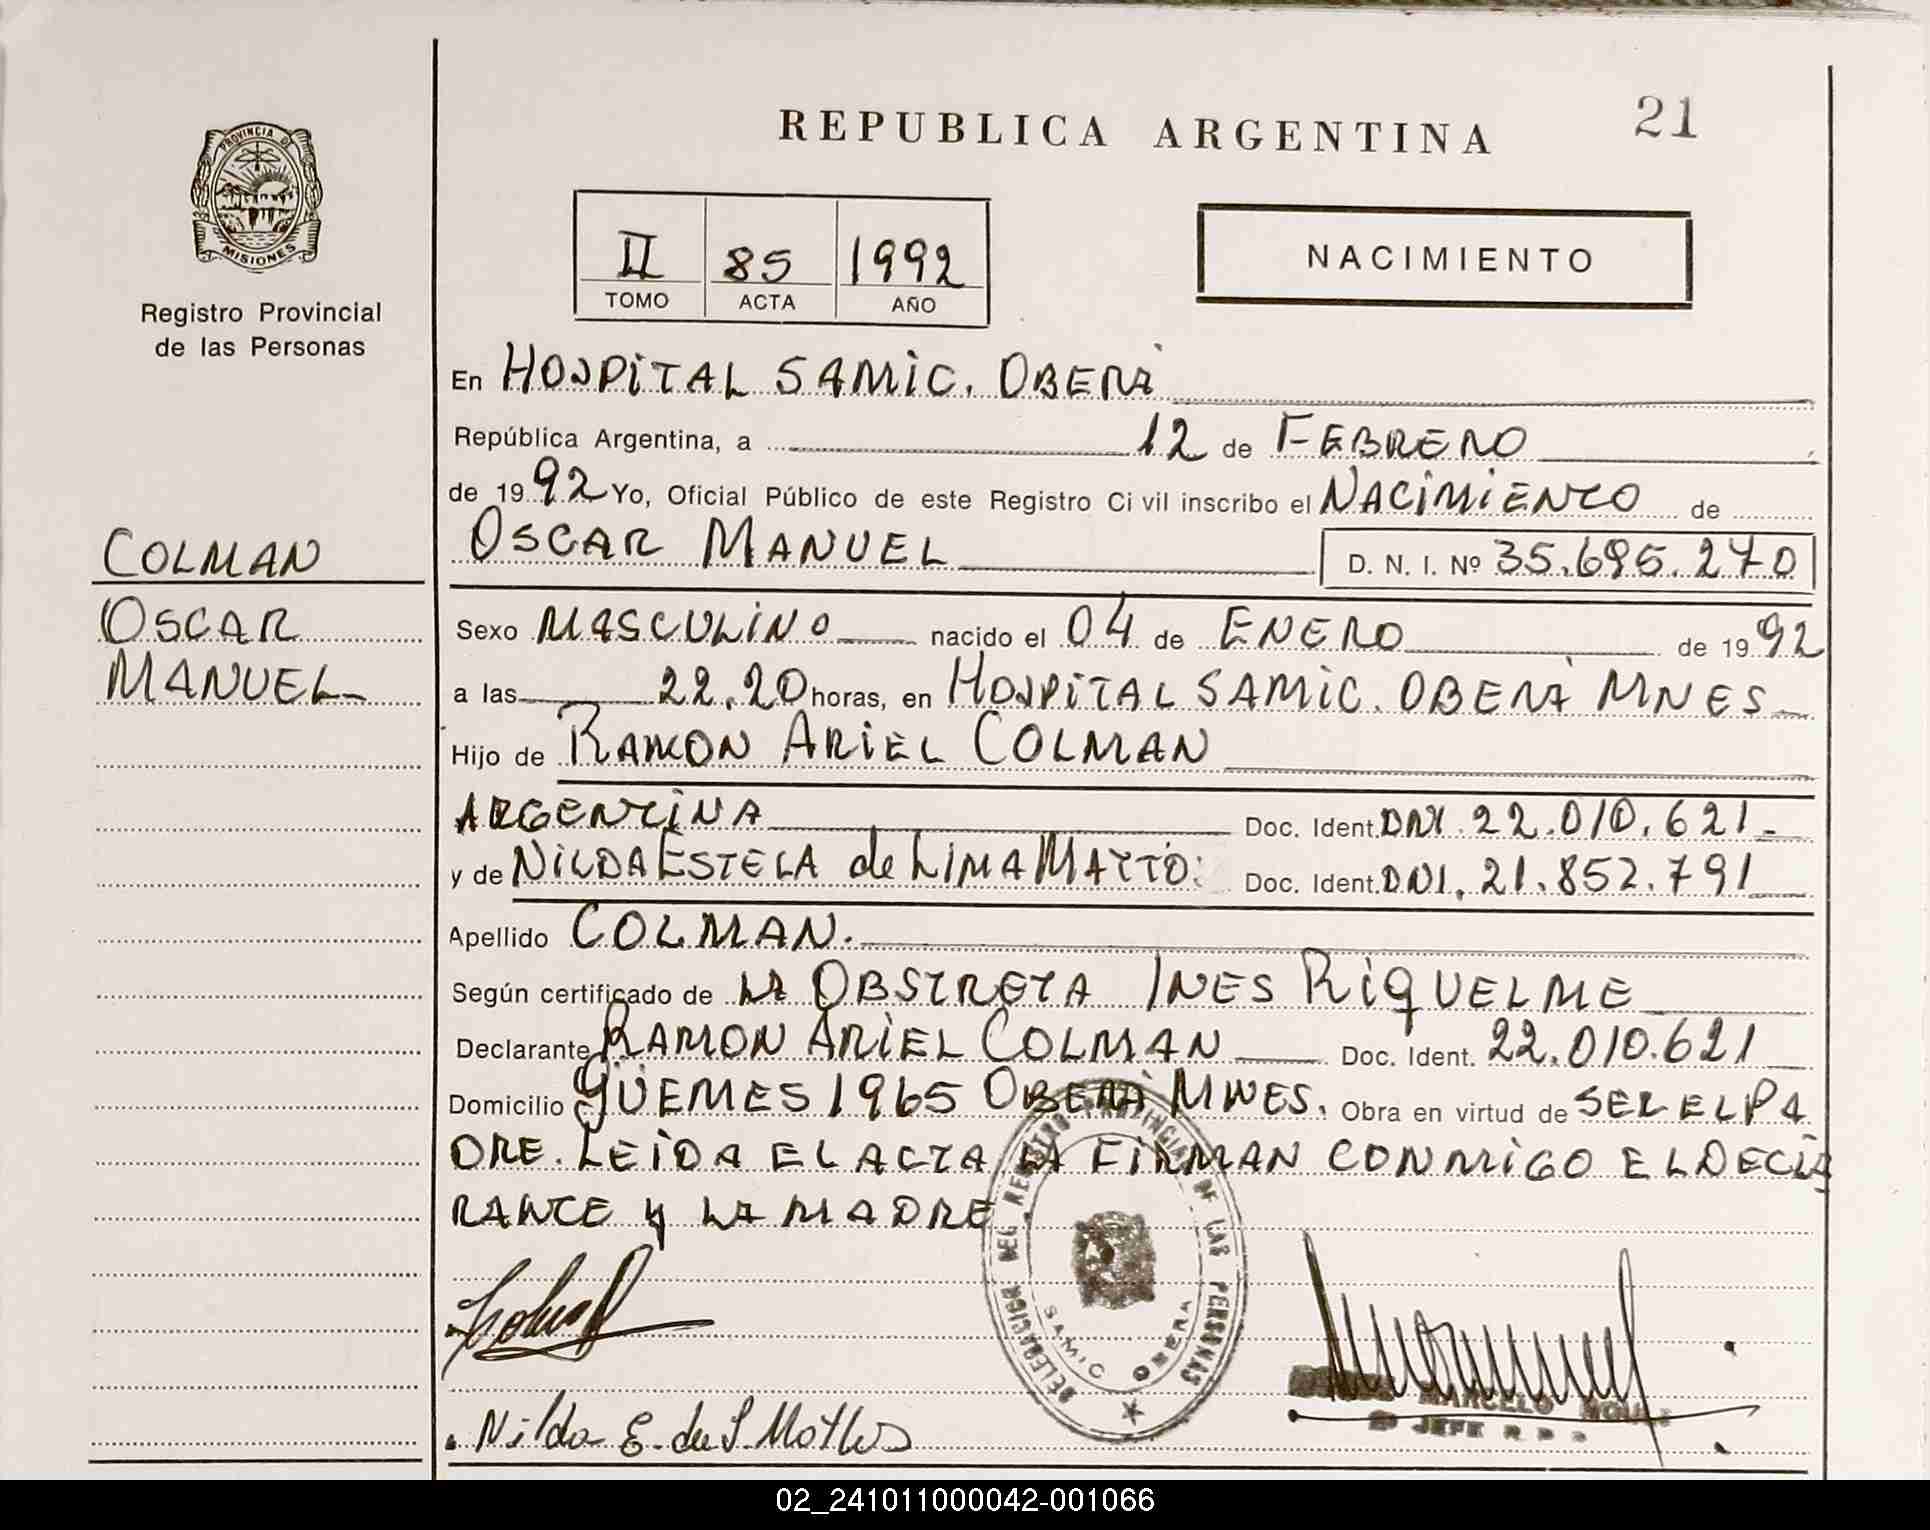 REPUBLICA ARGENTINA
21
PROVINCIA DE MISIONES
Registro Provincial
de las Personas
II 85 1992
TOMO ACTA AÑO
NACIMIENTO
En HOSPITAL SAMIC. OBERÁ
República Argentina, a 12 de FEBRERO
de 1992 Yo, Oficial Público de este Registro Civil inscribo el NACIMIENTO de
COLMAN
OSCAR MANUEL D. N. I. Nº 35.695.270
OSCAR
MANUEL
Sexo MASCULINO nacido el 04 de ENERO de 1992
a las 22.20 horas, en HOSPITAL SAMIC. OBERÁ MNES
Hijo de RAMON ARIEL COLMAN
ARGENTINA Doc. Ident. DNI. 22.010.621
y de NILDA ESTELA de LIMA MATTO Doc. Ident. DNI. 21.852.791
Apellido COLMAN.
Según certificado de LA OBSTRETA INES RIQUELME
Declarante RAMON ARIEL COLMAN Doc. Ident. 22.010.621
Domicilio GÜEMES 1965 OBERÁ MNES. Obra en virtud de SER EL PA
DRE. LEIDA EL ACTA LA FIRMAN CONMIGO EL DECLA
RANTE y LA MADRE
DELEGACION DEL REGISTRO PROVINCIAL DE LAS PERSONAS
SAMIC OBERA
Nilda E. de
MARCELO
JEFE
02_241011000042-001066